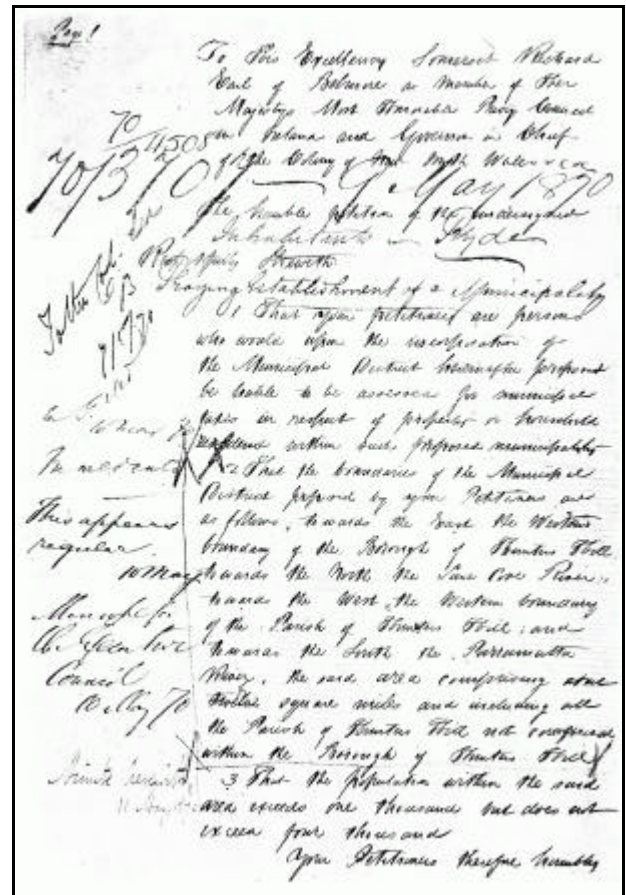 Page 1
To His Excellency Somerset Richard
Earl of Belmore a member of Her
Majestys Most Honorable Privy Council
in Ireland and Governor in Chief
of the Colony of New South Wales
70/4508
70/3701 9 May 1870
The humble petition of the undersigned
Inhabitants Ryde
Respectfully Sheweth
Praying establishment of a Municipality
1 That your petitioners are persons
who would upon the incorporation of
the Municipal District hereinafter proposed
be liable to be assessed for municipal
rates in respect of properties or household
within such proposed municipality
2 That the boundaries of the Municipal
District proposed by your Petitioners are
as follows, towards the East the Western
boundary of the Borough of Hunters Hill
towards the North the Lane Cove River,
towards the West, the Western boundary
of the Parish of Hunters Hill; and
towards the South the Parramatta
River, the said area comprising about
twelve square miles and including all
the Parish of Hunters Hill not comprised
within the Borough of Hunters Hill
3 That the population within the said
area exceeds one thousand but does not
exceed four thousand
Your Petitioners therefore humbly
This appears
regular
10 May
Council